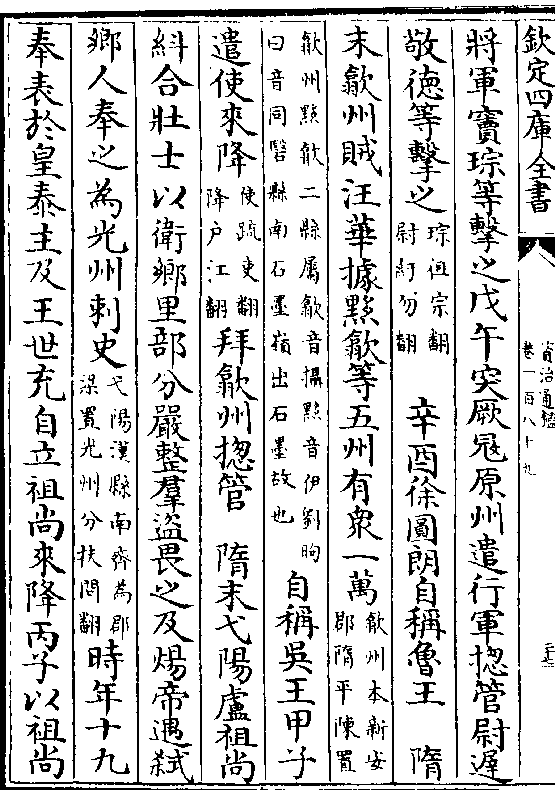 欽定四庫全書
資治通鑑
卷一百八十九
將軍竇琮等擊之戊午突厥冦原州遣行軍揔管尉遲
敬德等擊之琮徂宗翻尉紆勿翻 辛酉徐圓朗自稱魯王 隋
末歙州賊汪華據黟歙等五州有衆一萬歙州本新安郡隋平陳置
歙州黟歙二縣屬歙音攝黟音伊劉昫曰音同醫縣南石墨嶺出石墨故也自稱吳王甲子
遣使來降使疏吏翻降户江翻拜歙州揔管 隋末弋陽盧祖尚
紏合壯士以衛鄉里部分嚴整羣盜畏之及煬帝遇弑
鄉人奉之為光州刺史弋陽漢縣南齊為郡梁置光州分扶問翻時年十九
奉表於皇泰主及王世充自立祖尚來降丙子以祖尚